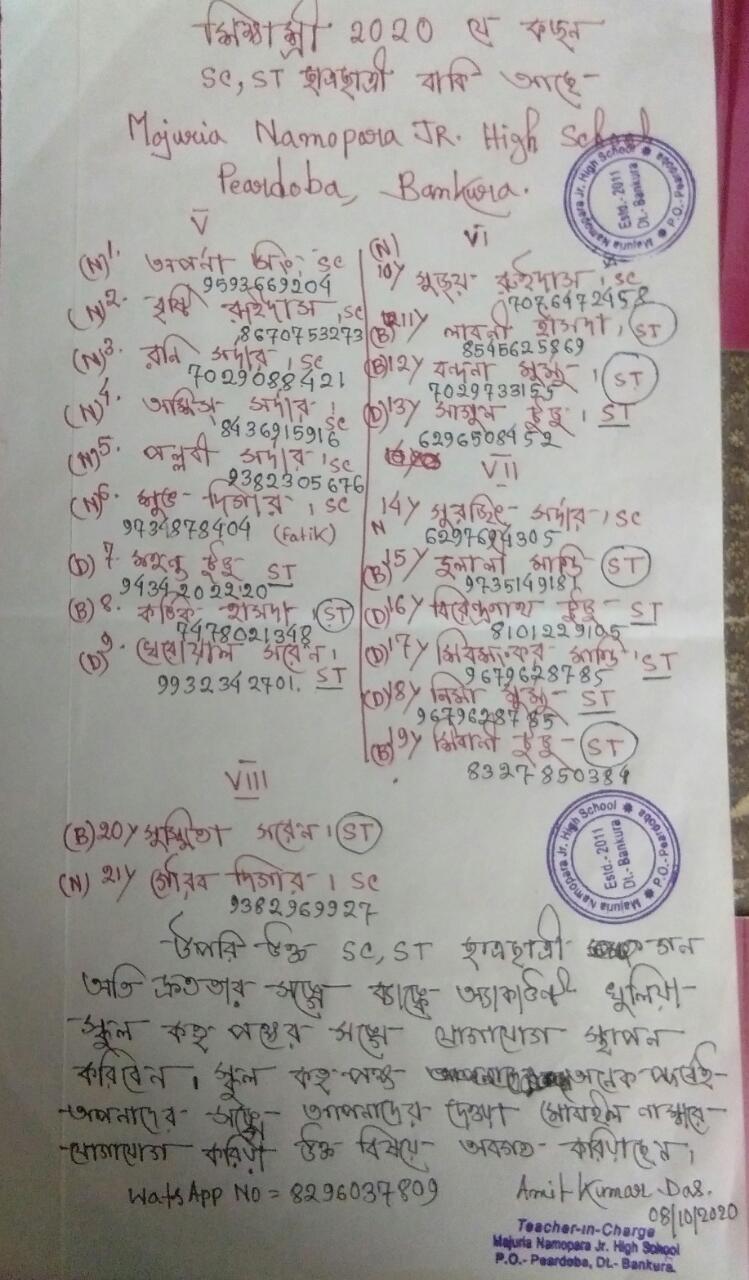 শিক্ষাশ্রী 2020 যে কজন
SC, ST ছাত্রছাত্রী বাকি আছে-
Majuria Namopara JR. High School
Peardoba, Bankura.
Majuria Namopara Jr. High School P.O.- Peardoba
Estd.- 2011
Dt.- Bankura
V
(N) 1. অপর্ণা সিং, SC
9593669204
(N) 2. বৃষ্টি রুইদাস, SC
8670753273
(N) 3. রনি সর্দার, SC
7029088421
(N) 4. অসিত সর্দার, SC
8436915916
(N) 5. পল্লবী সর্দার, SC
9382305676
(N) 6. শুভ দিগার, SC
9734878404 (Fatik)
(D) 7. টুডু ST
9434202220
(B) 8. কার্তিক হাঁসদা, ST
7478021348
(D) 9. খেরোয়াল সরেন, ST
9932342701.
VI
(N) 10) সুজয় রুইদাস, SC
7076472458
(B) 11) লাবনী হাঁসদা, ST
8545625869
(B) 12) বন্দনা মুর্মু, ST
7029733155
(D) 13) টুডু, ST
6296508452
VII
N 14) সুরজিৎ সর্দার, SC
6297694305
(B) 15) দুলালী মান্ডি ST
973514918
(D) 16) বিরেন্দ্রনাথ টুডু- ST
8101229105
(D) 17) শিবশংকর মান্ডি, ST
9679628785
(D) 18) মুর্মু- ST
9679628785
(B) 19) শিবানী টুডু- ST
8327850384
VIII
(B) 20) সুস্মিতা সরেন। ST
(N) 21) গৌরব দিগার। SC
9382969927
Majuria Namopara Jr. High School P.O.- Peardoba
Estd.- 2011
Dt.- Bankura
উপরি উক্ত SC, ST ছাত্রছাত্রী গন
অতি দ্রুততার সঙ্গে ব্যাঙ্কে অ্যাকাউন্ট খুলিয়া
স্কুল কতৃ পক্ষের সঙ্গে যোগাযোগ স্থাপন
করিবেন। স্কুল কতৃ পক্ষ অনেক পূর্বেই
আপনাদের সঙ্গে আপনাদের দেওয়া মোবাইল নাম্বারে
যোগাযোগ করিয়া উক্ত বিষয়ে অবগত করিয়াছেন।
WatsApp No = 8296037809
Amit Kumar Das.
08/10/2020
Teacher-in-Charge
Majuria Namopara Jr. High School
P.O.- Peardoba, Dt.- Bankura.